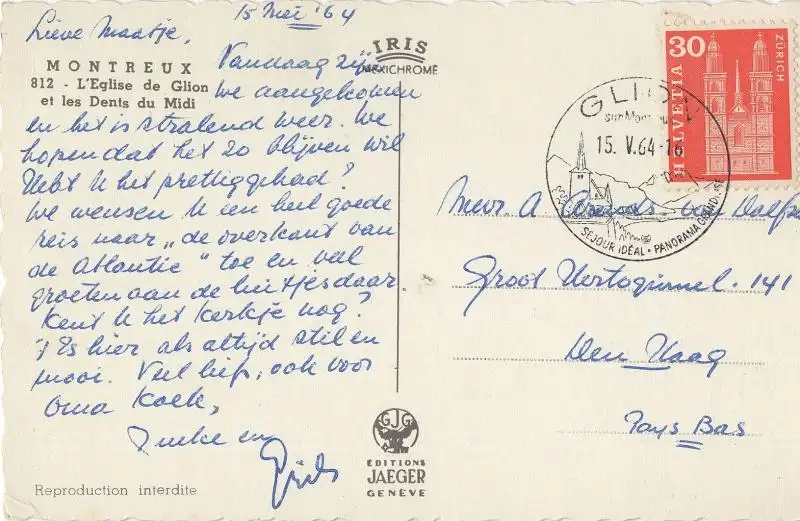 15 Mei '64
Lieve Maatje,
Vandaag zijn
we aangekomen
en het is stralend weer. We
hopen dat het zo blijven wil
Hebt U het prettig gehad?
We wensen U een heel goede
reis naar „de overkant van
de Atlantic" toe en veel
groeten aan de luitjes daar.
Kent U het kerkje nog?
't Is hier als altijd stil en
mooi. Veel liefs, ook voor
Oma Koek,
en
MONTREUX
812 - L'Eglise de Glion
et les Dents du Midi
Reproduction interdite
IRIS
MEXICHROME
GJG
ÉDITIONS
JAEGER
GENÈVE
30
HELVETIA
ZÜRICH
GLION
sur Montreux
15. V. 64-16
SEJOUR IDÉAL • PANORAMA GRANDIOSE
Mevr. A van
Groot Hertoginnel. 141
Den Haag
Pays Bas